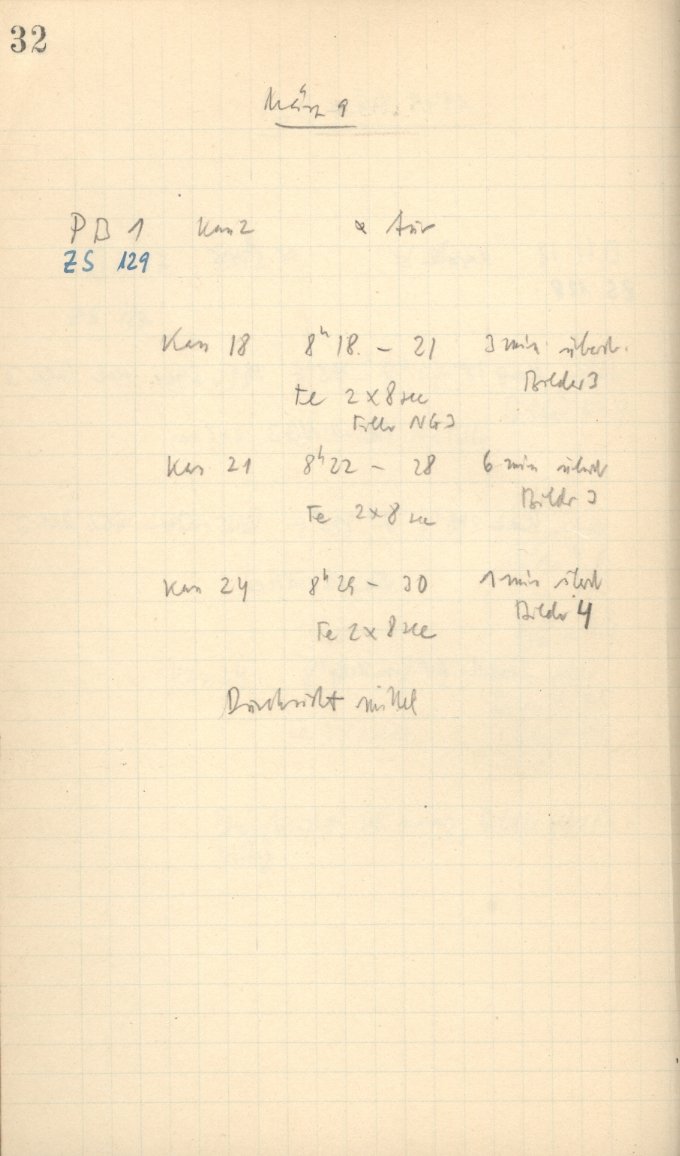 32
März 9
PB 1 Kas 2 α Aur
ZS 129
Kas 18 8h 18. - 21 3 min. überb.
Fe 2 x 8 sec Bilder 3
Filter NG3
Kas 21 8h 22 - 28 6 min überb
Fe 2 x 8 sec Bilder 3
Kas 24 8h 29 - 30 1 min überb
Fe 2 x 8 sec Bilder 4
Durchsicht mittel